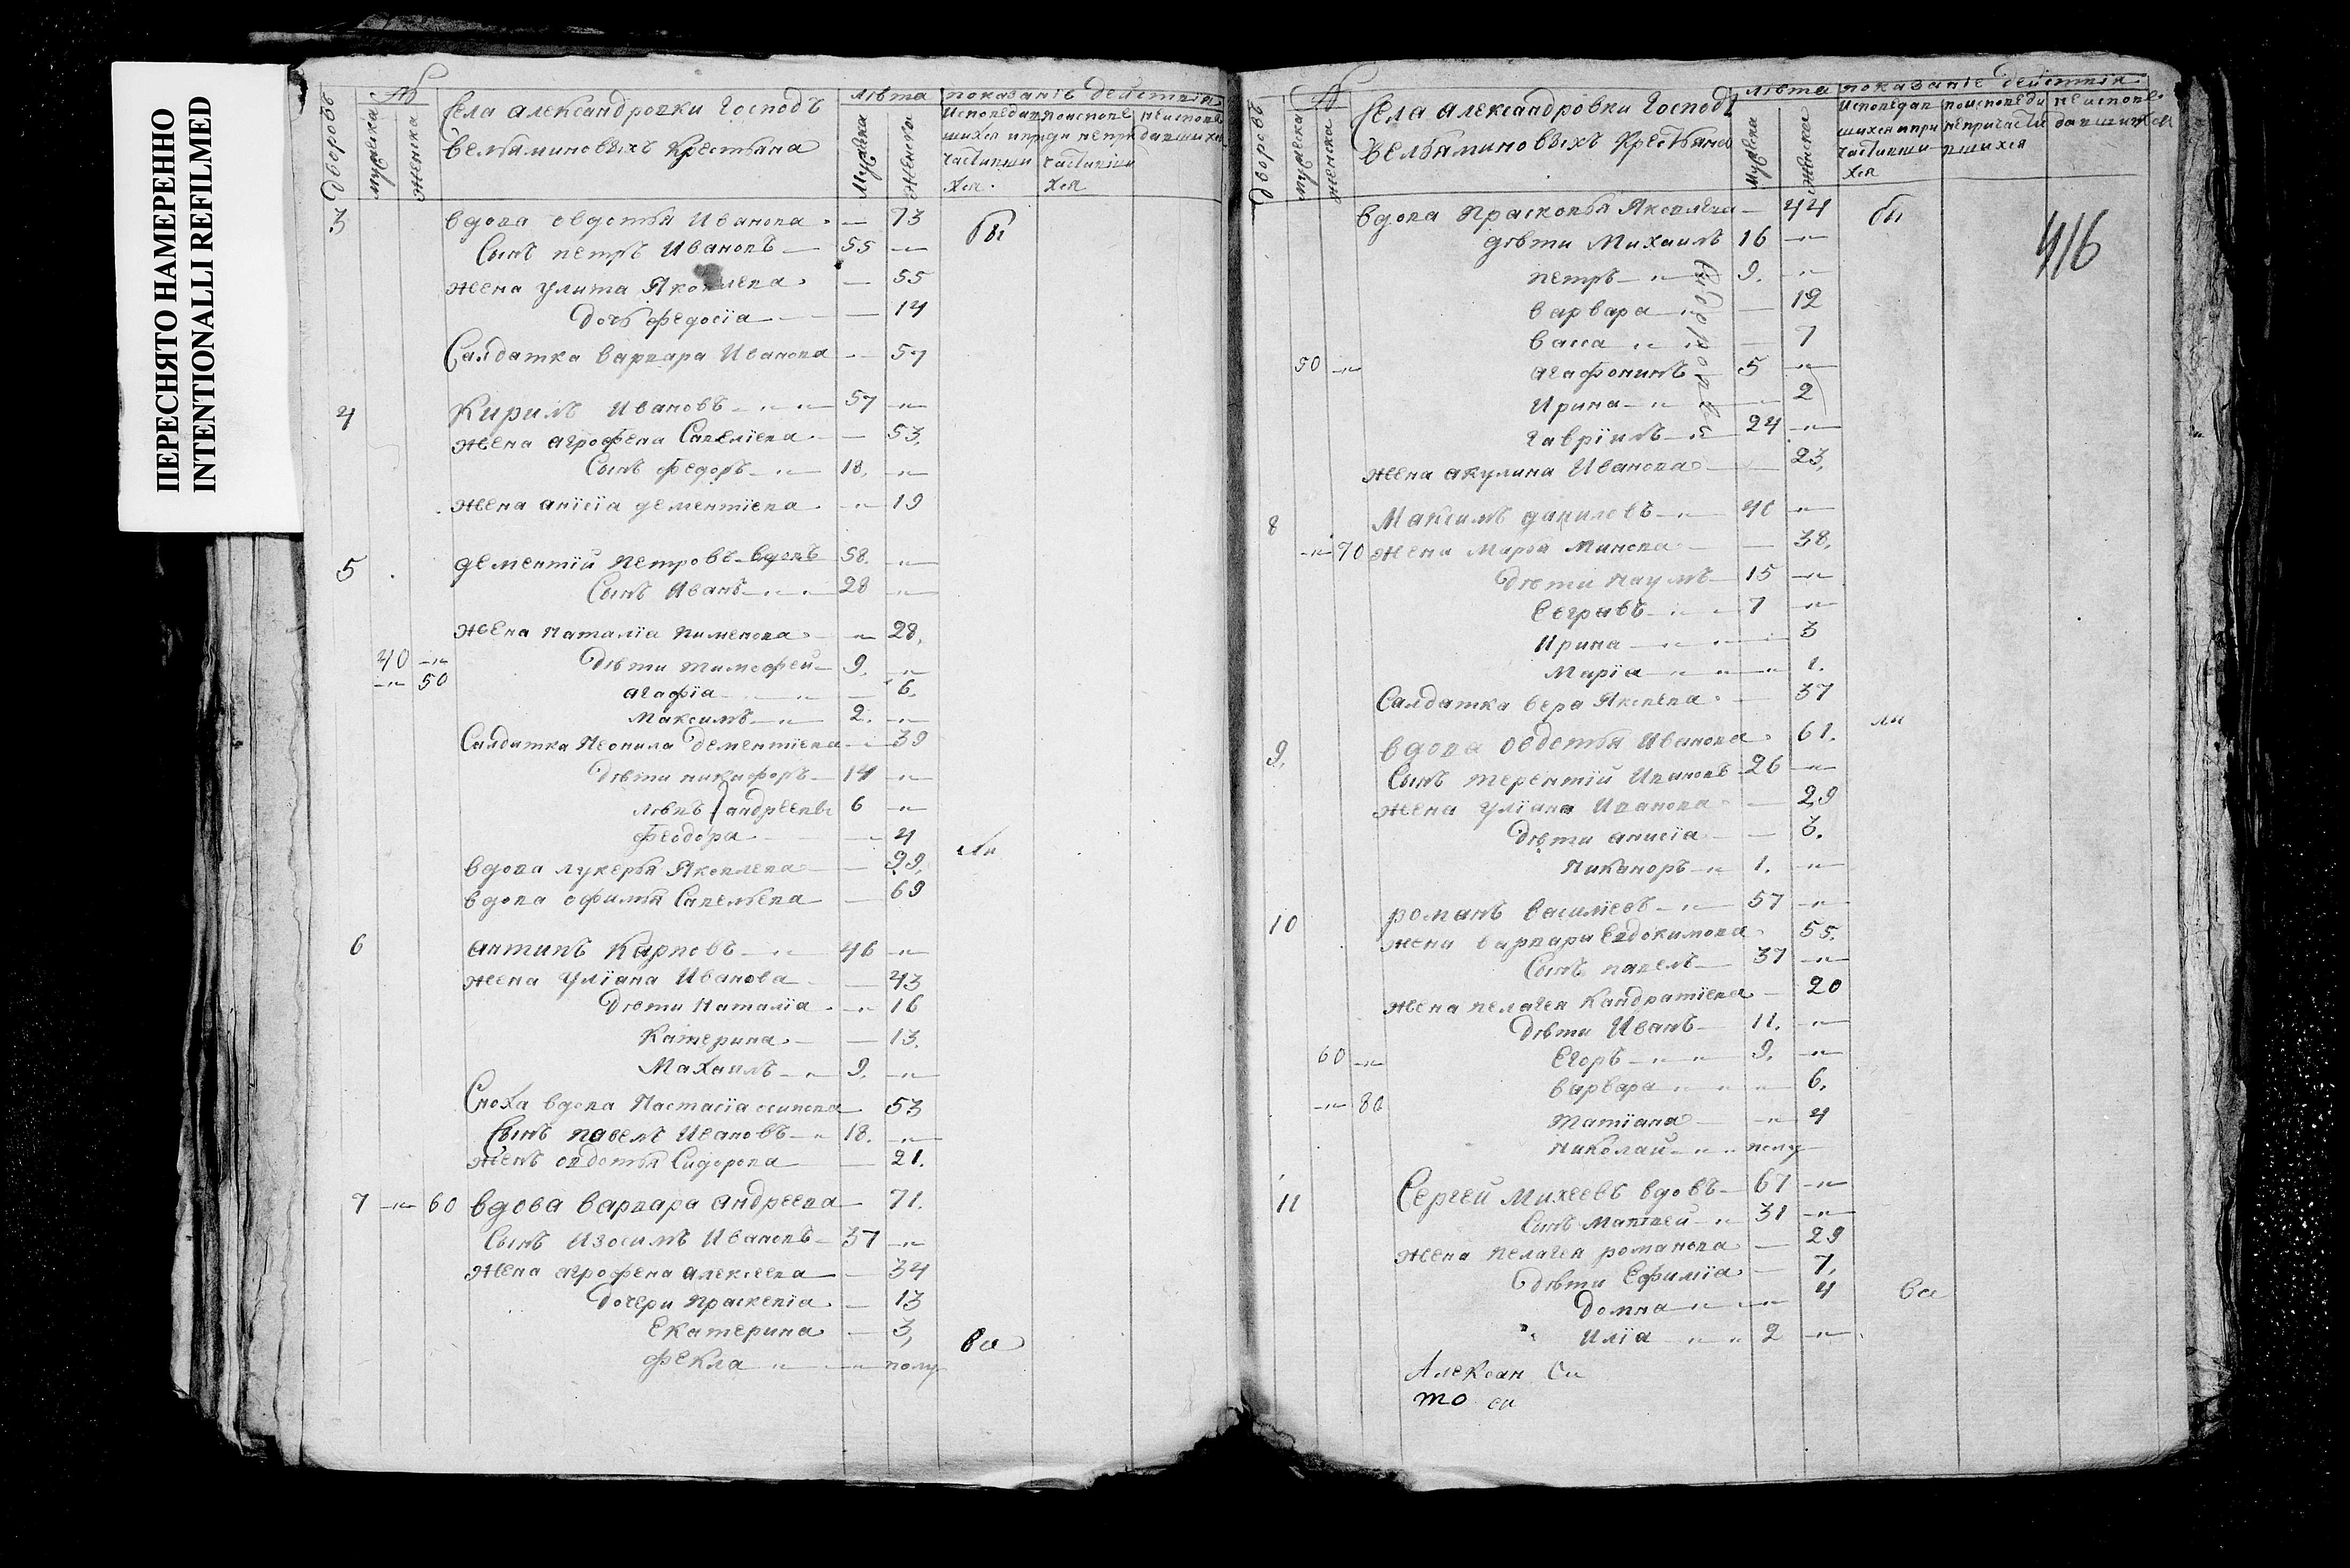 ПЕРЕСНЯТО НАМЕРЕННО
INTENTIONALLI REFILMED
дворовъ
№
мужеска
женска
села александровки господъ
вельяминовыхъ крестьяна
лѣта
мужска
женска
показаніе действія
исповедав
шихся и при
частивши
хся
по исповѣ
ди не при
частивши
хся
не испове
давшихся
3 вдова овдотья Иванова — 73 бы
Сынъ петръ Ивановъ — 55
жена улита Яковлева — 55
дочь федосіа — 14
Салдатка варвара Иванова — 57
4 Кирилъ Ивановъ — 57
жена агрофена Савеліева — 53.
Сынъ федоръ — 18.
жена анісіа дементіева — 19
5 дементій петровъ вдовъ 58.
Сынъ Иванъ — 28
жена наталіа пименова — 28.
40 дѣти тимофей — 9.
50 агафіа — 6.
максимъ — 2.
Салдатка неонила дементіева — 39
дѣти никифоръ — 14
левъ андреевы 6
феодора — 4
вдова лукерья Яковлева — 99. ли
вдова офимья Савельева — 69
6 антипъ Карповъ — 46
жена уліана Иванова — 43
дѣти наталіа — 16
Катерина — 13.
Михаилъ — 9.
Сноха вдова настасіа осипова 53
Сынъ павелъ Ивановъ — 18.
женъ овдотья Сидорова — 21.
7 60 вдова варвара андреева — 71.
Сынъ Изосимъ Ивановъ — 37
жена агрофена алексеева — 34
дочери прасковіа — 13
Екатерина — 3,
фекла — полу
ва
дворовъ
№
мужеска
женска
села александровки господъ
вельяминовыхъ крестьяна
лѣта
мужеска
женска
показаніе действія
исповедав
шихся и при
частивши
хся
по исповеди
не причасти
вшихся
не испове
давшихся
416
вдова прасковья Яковлева — 44 бы
дѣти Михаилъ 16
петръ — 9.
варвара — 12
васса — 7
50 агафоникъ — 5
Ирина — 2
гавріилъ — 24
жена акулина Иванова — 23,
8 Максимъ даниловъ — 40
70 жена марья минова — 38.
дѣти наумъ — 15
Евграфъ — 7
Ирина — 3
Маріа — 1.
Салдатка вера Яковлева — 37
9. вдова овдотья Иванова — 61. ли
Сынъ терентій Ивановъ — 26
жена уліана Иванова — 29
дѣти анисіа — 3.
никаноръ — 1.
10 романъ василіевъ — 57
жена варвара Евдокимова — 55.
Сынъ павелъ — 37
жена пелагея Кандратіева — 20
дѣти Иванъ — 11.
60 Егоръ — 9.
варвара — 6.
80 татіана — 4
николай — полу
11 Сергей михеевъ вдовъ — 67
Сынъ матвей — 31
жена пелагея романова — 29
дѣти Ефиміа — 7,
домна — 4 ва
иліа — 2
Алексан Си
то си